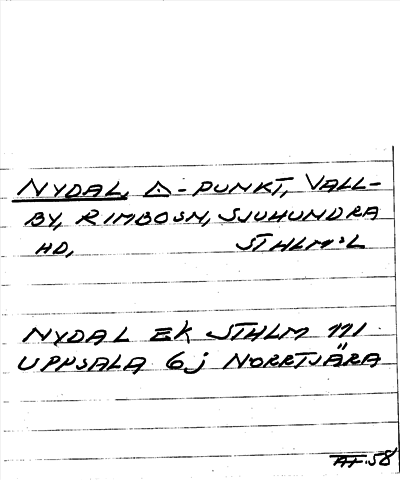 NYDAL, △-PUNKT, VALL-
BY, RIMBOSN, SJUHUNDRA
HD, STHLM:L
NYDAL EK STHLM 111
UPPSALA 6j NORRTJÄRA
AF.58